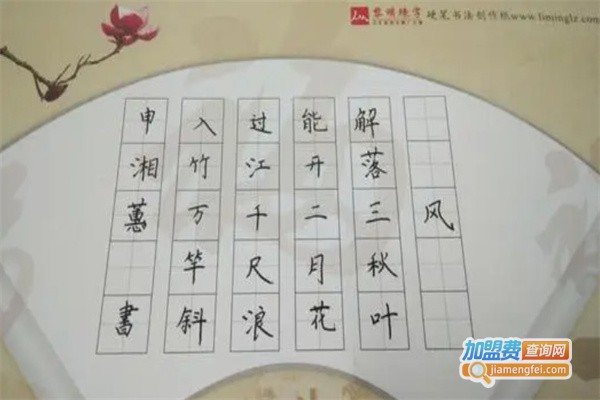 黎明练字
硬笔书法创作格www.liminglz.com
风
解落三秋叶
能开二月花
过江千尺浪
入竹万竿斜
申湘蕙 書
加盟费查询网
jiamengfei.com